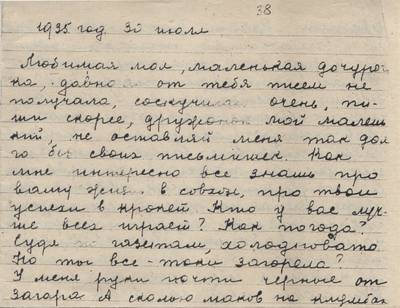 38
1935 год 30 июля
Любимая моя, маленькая дочуроч
ка, давно я от тебя писем не
получала, соскучилась очень, пи-
ши скорее, дружочек мой малень
кий, не оставляй меня так дол
го без своих письмишек. Как
мне интересно все знать про
вашу жизнь в совхозе, про твои
успехи в крокет. Кто у вас луч-
ше всех играет? Как погода?
Судя по газетам, холодновато
Но ты все-таки загорела?
У меня руки почти черные от
загара А сколько маков на клумбах